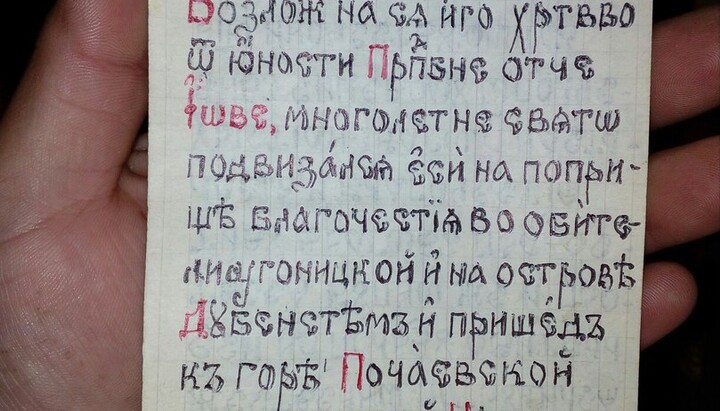 Возлож на сѧ иго хртвво
ѿ ю҆ности Прпⷣбне отче
І҆ѡве, многолетне свѧтѡ
подвиза́лсѧ є҆сѝ на попри-
щѣ благочестїѧ во оби́те-
ли угоницкой и҆ на островѣ
Дꙋбенстѣмъ и҆ прише́дъ
къ горѣ Поча́евской